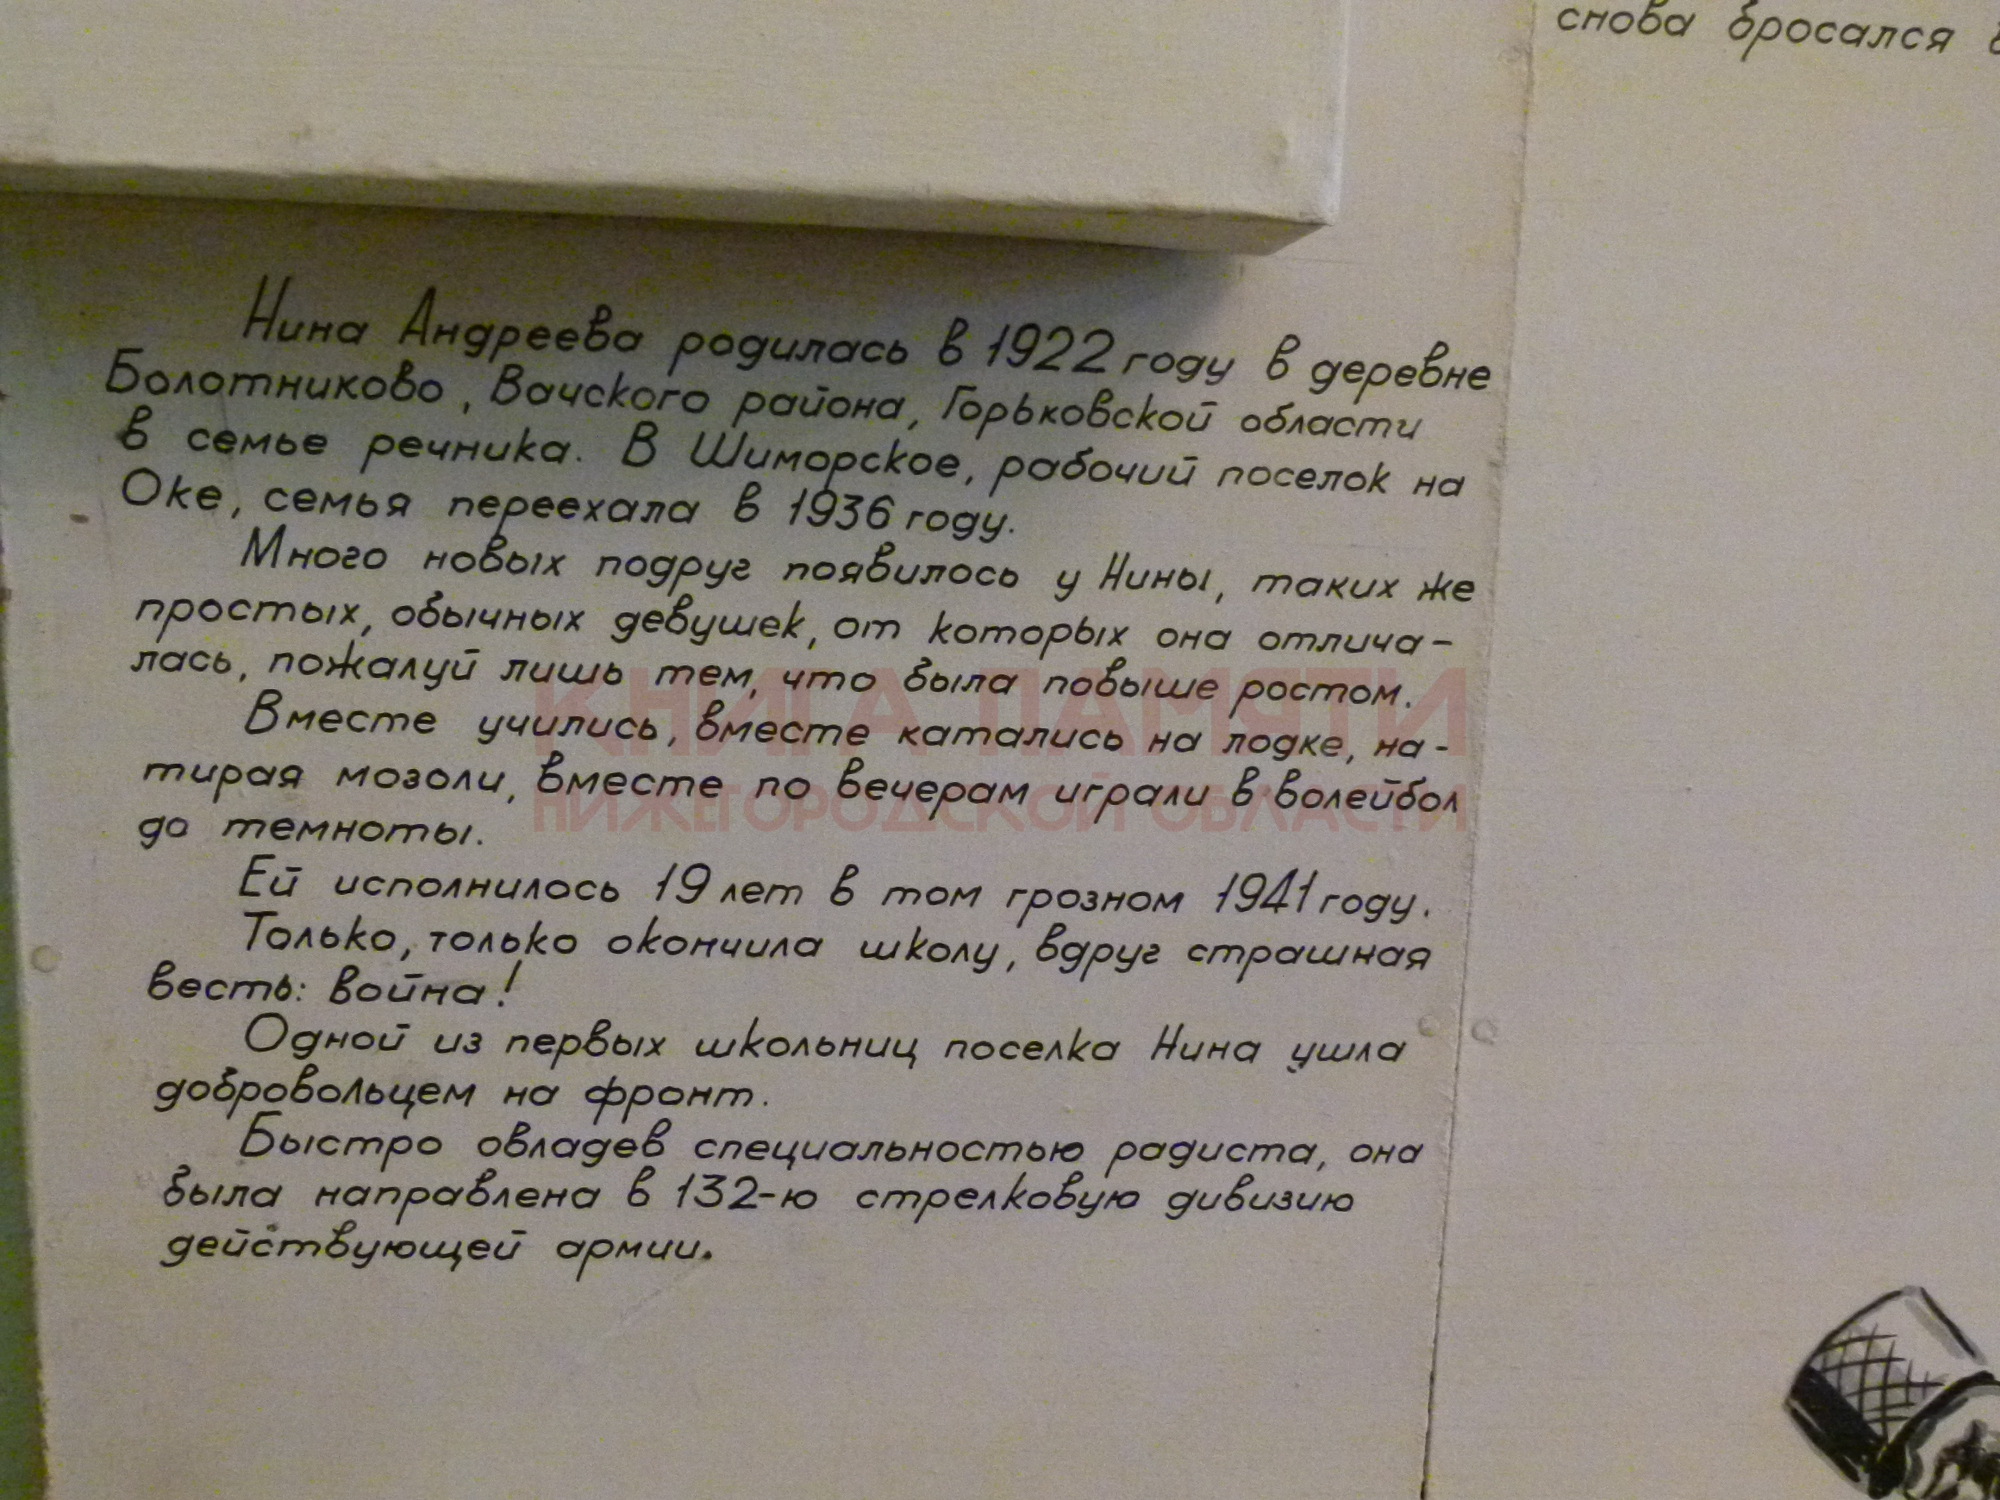 снова бросался
Нина Андреева родилась в 1922 году в деревне
Болотниково, Вачского района, Горьковской области
в семье речника. В Шиморское, рабочий поселок на
Оке, семья переехала в 1936 году.
Много новых подруг появилось у Нины, таких же
простых, обычных девушек, от которых она отлича-
лась, пожалуй лишь тем, что была повыше ростом.
Вместе учились, вместе катались на лодке, на-
тирая мозоли, вместе по вечерам играли в волейбол
до темноты.
Ей исполнилось 19 лет в том грозном 1941 году.
Только, только окончила школу, вдруг страшная
весть: война!
Одной из первых школьниц поселка Нина ушла
добровольцем на фронт.
Быстро овладев специальностью радиста, она
была направлена в 132-ю стрелковую дивизию
действующей армии.
КНИГА ПАМЯТИ
НИЖЕГОРОДСКОЙ ОБЛАСТИ